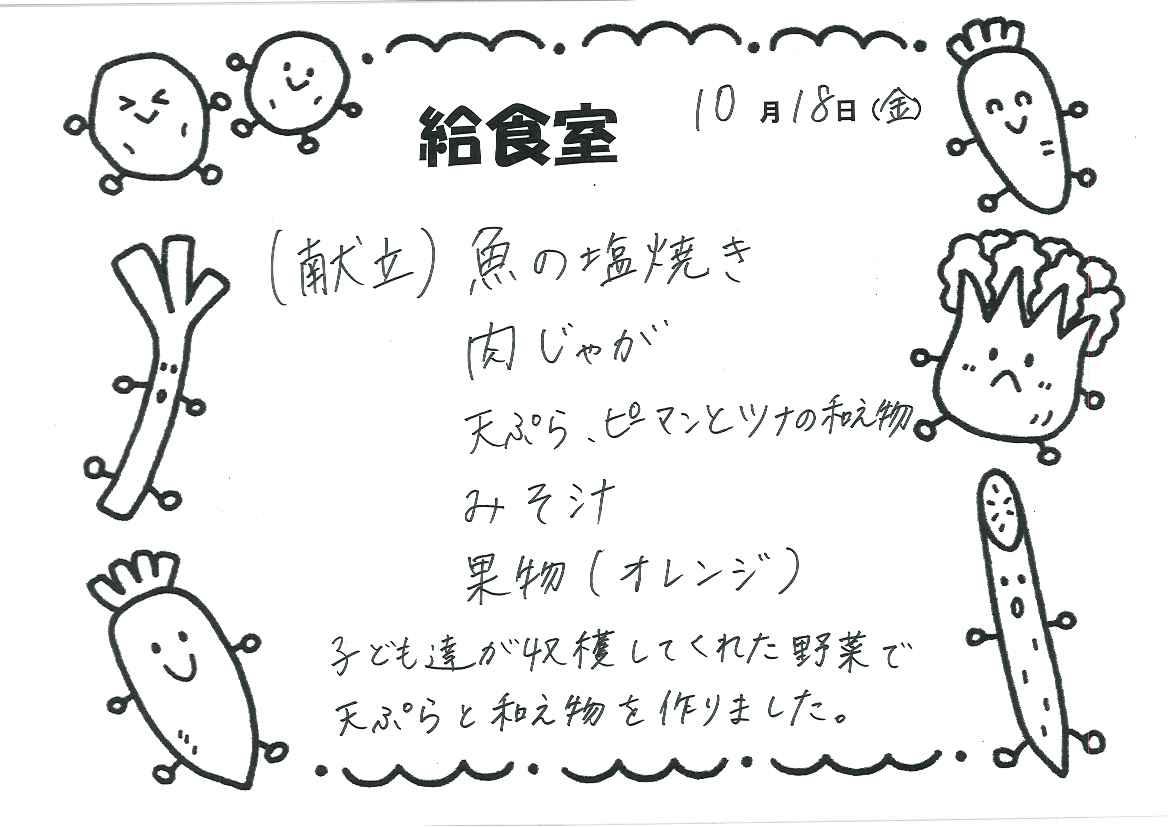 給食室
10月18日(金)
(献立) 魚の塩焼き
肉じゃが
天ぷら、ピーマンとツナの和え物
みそ汁
果物(オレンジ)
子ども達が収穫してくれた野菜で
天ぷらと和え物を作りました。